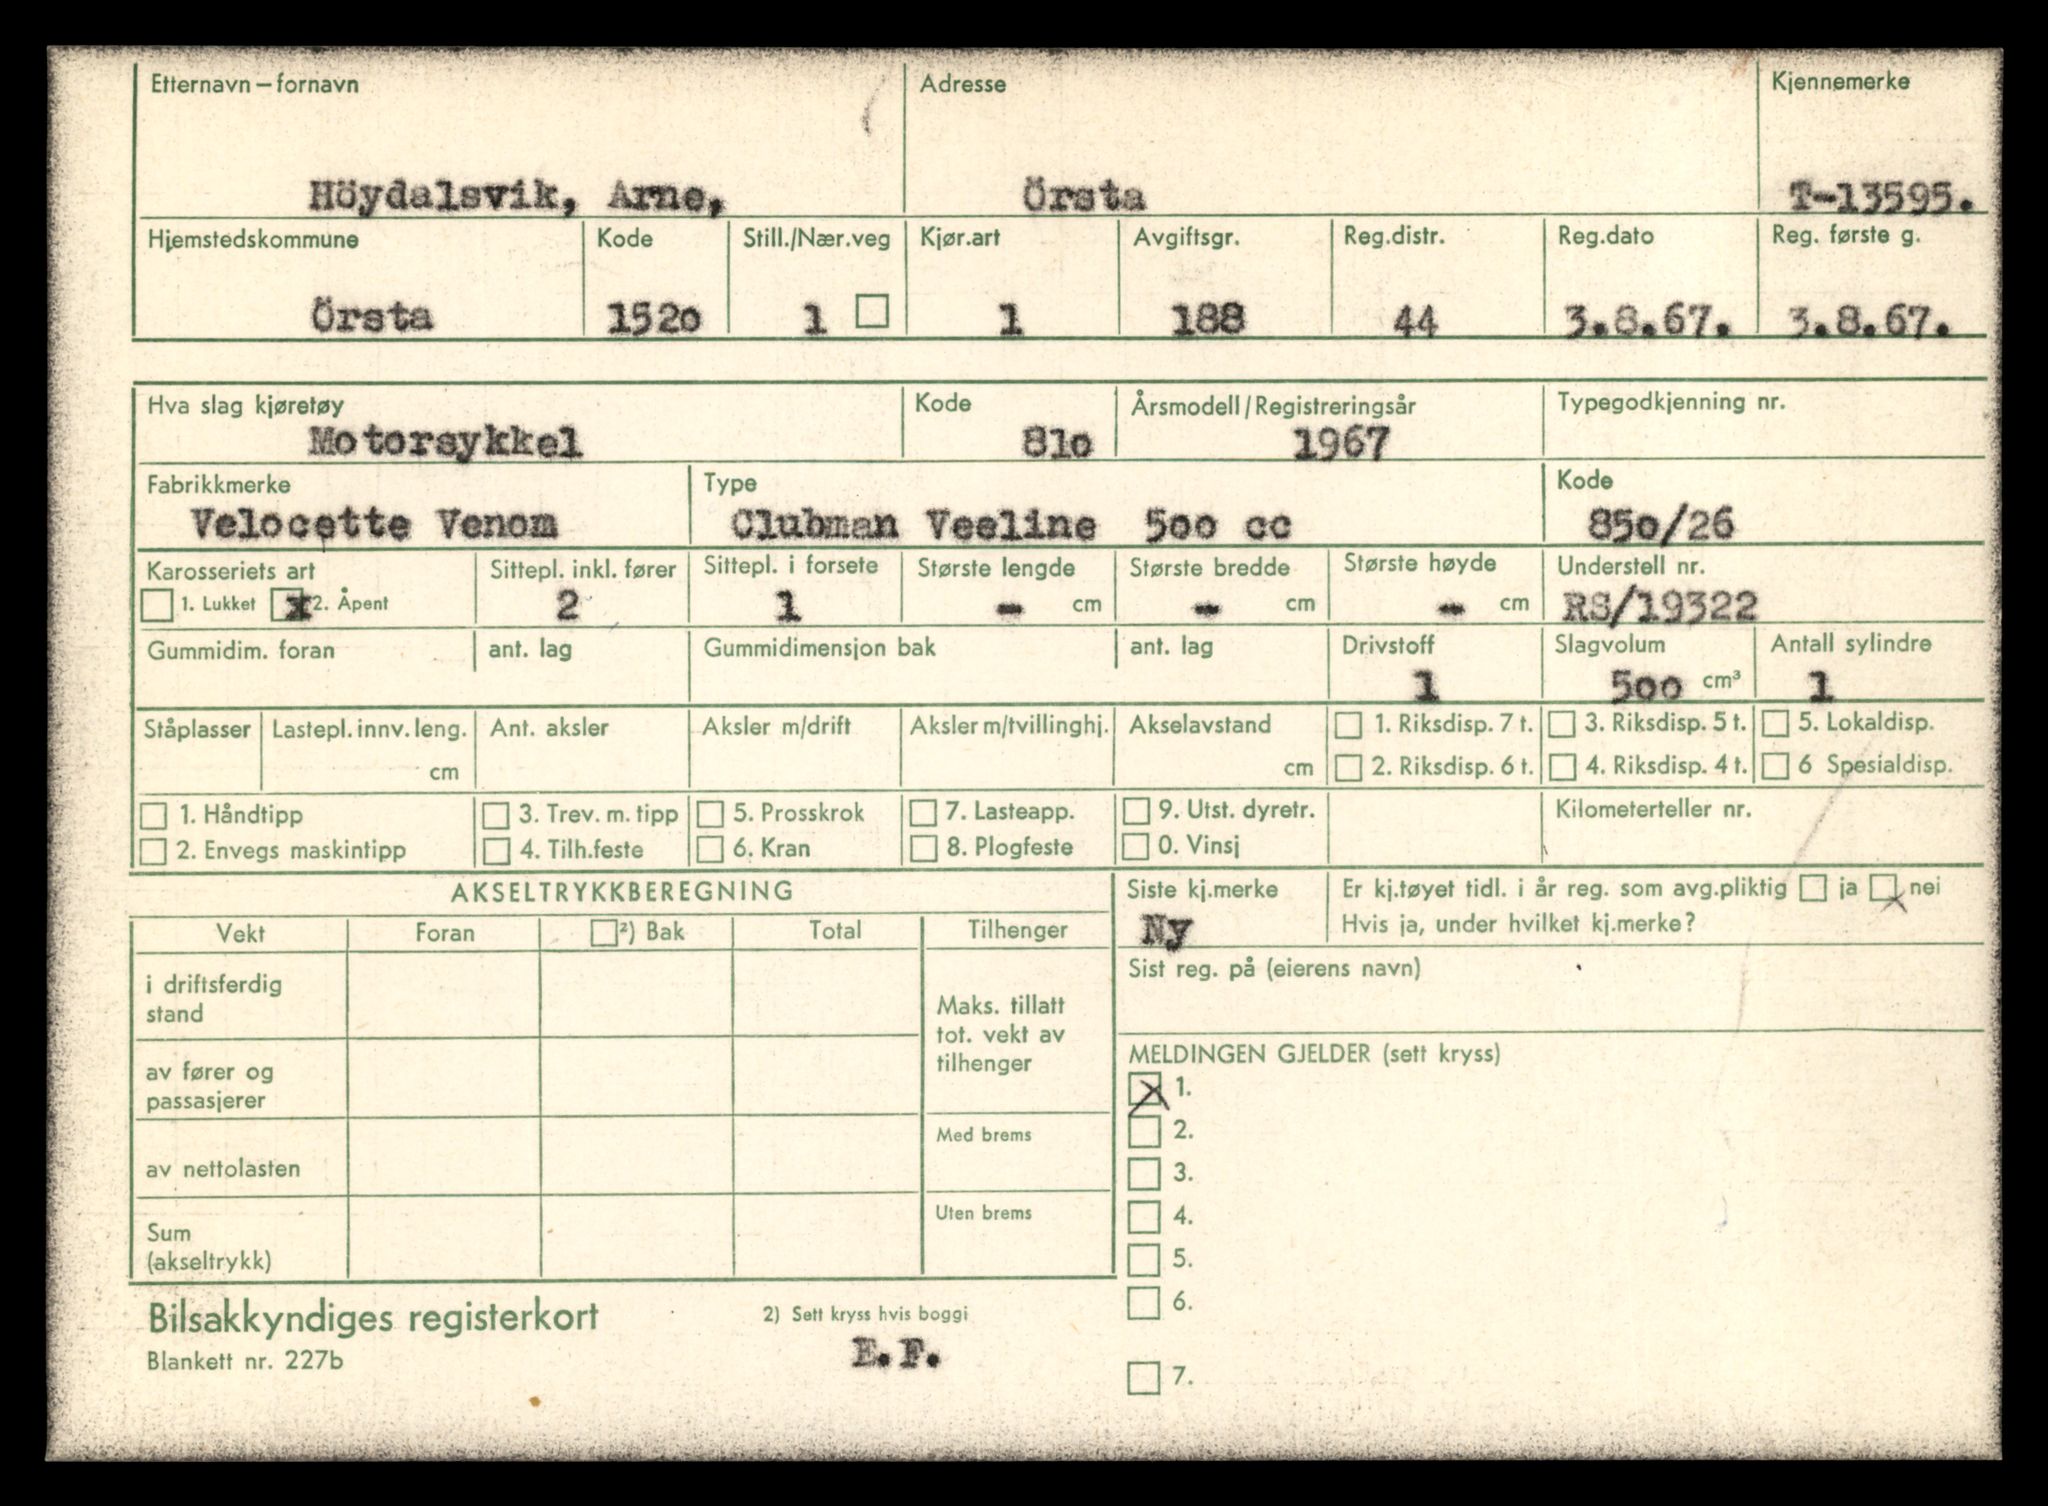 Etternavn – fornavn Adresse Kjennemerke
Höydalsvik, Arne, Örsta T-13595.
Hjemstedskommune Kode Still./Nær.veg Kjør.art Avgiftsgr. Reg.distr. Reg.dato Reg. første g.
Örsta 1520 1 1 188 44 3.8.67. 3.8.67.
Hva slag kjøretøy Kode Årsmodell/Registreringsår Typegodkjenning nr.
Motorsykkel 810 1967
Fabrikkmerke Type Kode
Velocette Venom Clubman Veeline 500 cc 850/26
Karosseriets art Sittepl. inkl. fører Sittepl. i forsete Største lengde Største bredde Største høyde Understell nr.
1. Lukket x 2. Åpent 2 1 - cm - cm - cm RS/19322
Gummidim. foran ant. lag Gummidimensjon bak ant. lag Drivstoff Slagvolum Antall sylindre
1 500 cm³ 1
Ståplasser Lastepl. innv. leng. Ant. aksler Aksler m/drift Aksler m/tvillinghj. Akselavstand 1. Riksdisp. 7 t. 3. Riksdisp. 5 t. 5. Lokaldisp.
cm cm 2. Riksdisp. 6 t. 4. Riksdisp. 4 t. 6 Spesialdisp.
1. Håndtipp 3. Trev. m. tipp 5. Prosskrok 7. Lasteapp. 9. Utst. dyretr. Kilometerteller nr.
2. Envegs maskintipp 4. Tilh.feste 6. Kran 8. Plogfeste 0. Vinsj
AKSELTRYKKBEREGNING Siste kj.merke Er kj.tøyet tidl. i år reg. som avg.pliktig ja x nei
Vekt Foran ²) Bak Total Tilhenger Ny Hvis ja, under hvilket kj.merke?
i driftsferdig
stand
Sist reg. på (eierens navn)
Maks. tillatt
tot. vekt av
tilhenger
av fører og
passasjerer
MELDINGEN GJELDER (sett kryss)
x 1.
2.
Med brems
av nettolasten
3.
4.
Uten brems
Sum
(akseltrykk)
5.
6.
Bilsakkyndiges registerkort 2) Sett kryss hvis boggi
Blankett nr. 227b E.F.
7.